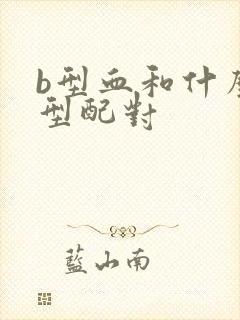 b型血和什麼
型配對
藍山南